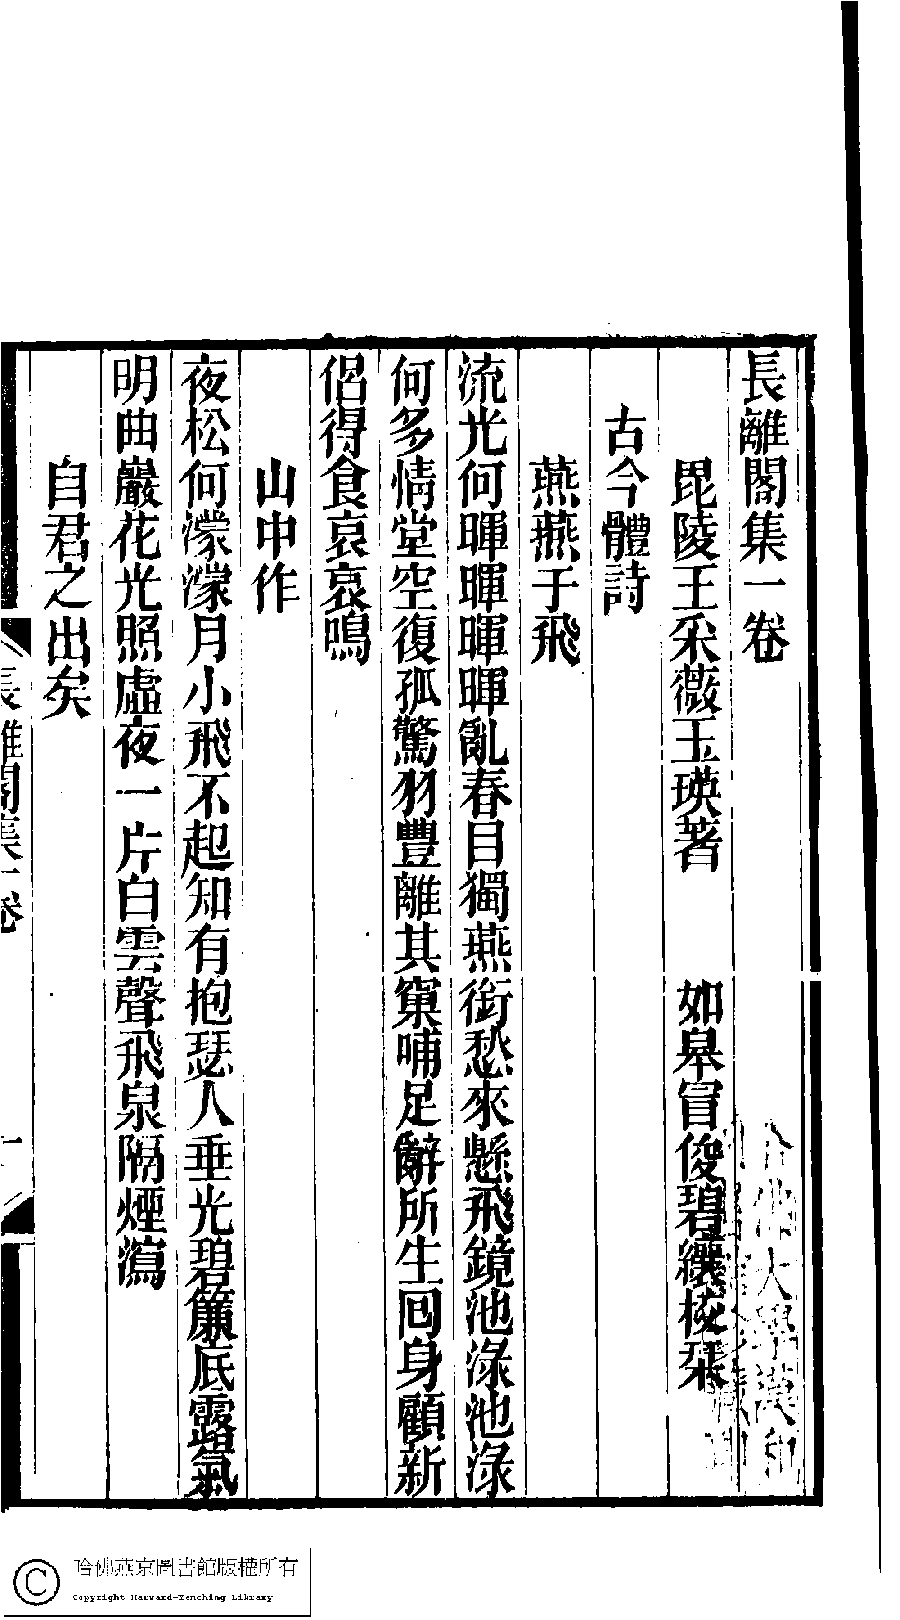 長離閣集一卷
毘陵王采薇玉瑛著　如皋冒俊碧纕校栞
古今體詩
燕燕于飛
流光何暉暉暉暉亂春目獨燕銜愁來懸飛鏡池淥池淥
何多情堂空復孤驚羽豐離其窠哺足辭所生回身顧新
侶得食哀哀鳴
山中作
夜松何濛濛月小飛不起知有抱瑟人垂光碧簾底露氣
明曲巖花光照虛夜一片白雲聲飛泉隔煙瀉
自君之出矣
長離閣集一卷
一
哈佛燕京圖書館版權所有
Copyright Harvard-Yenching Library